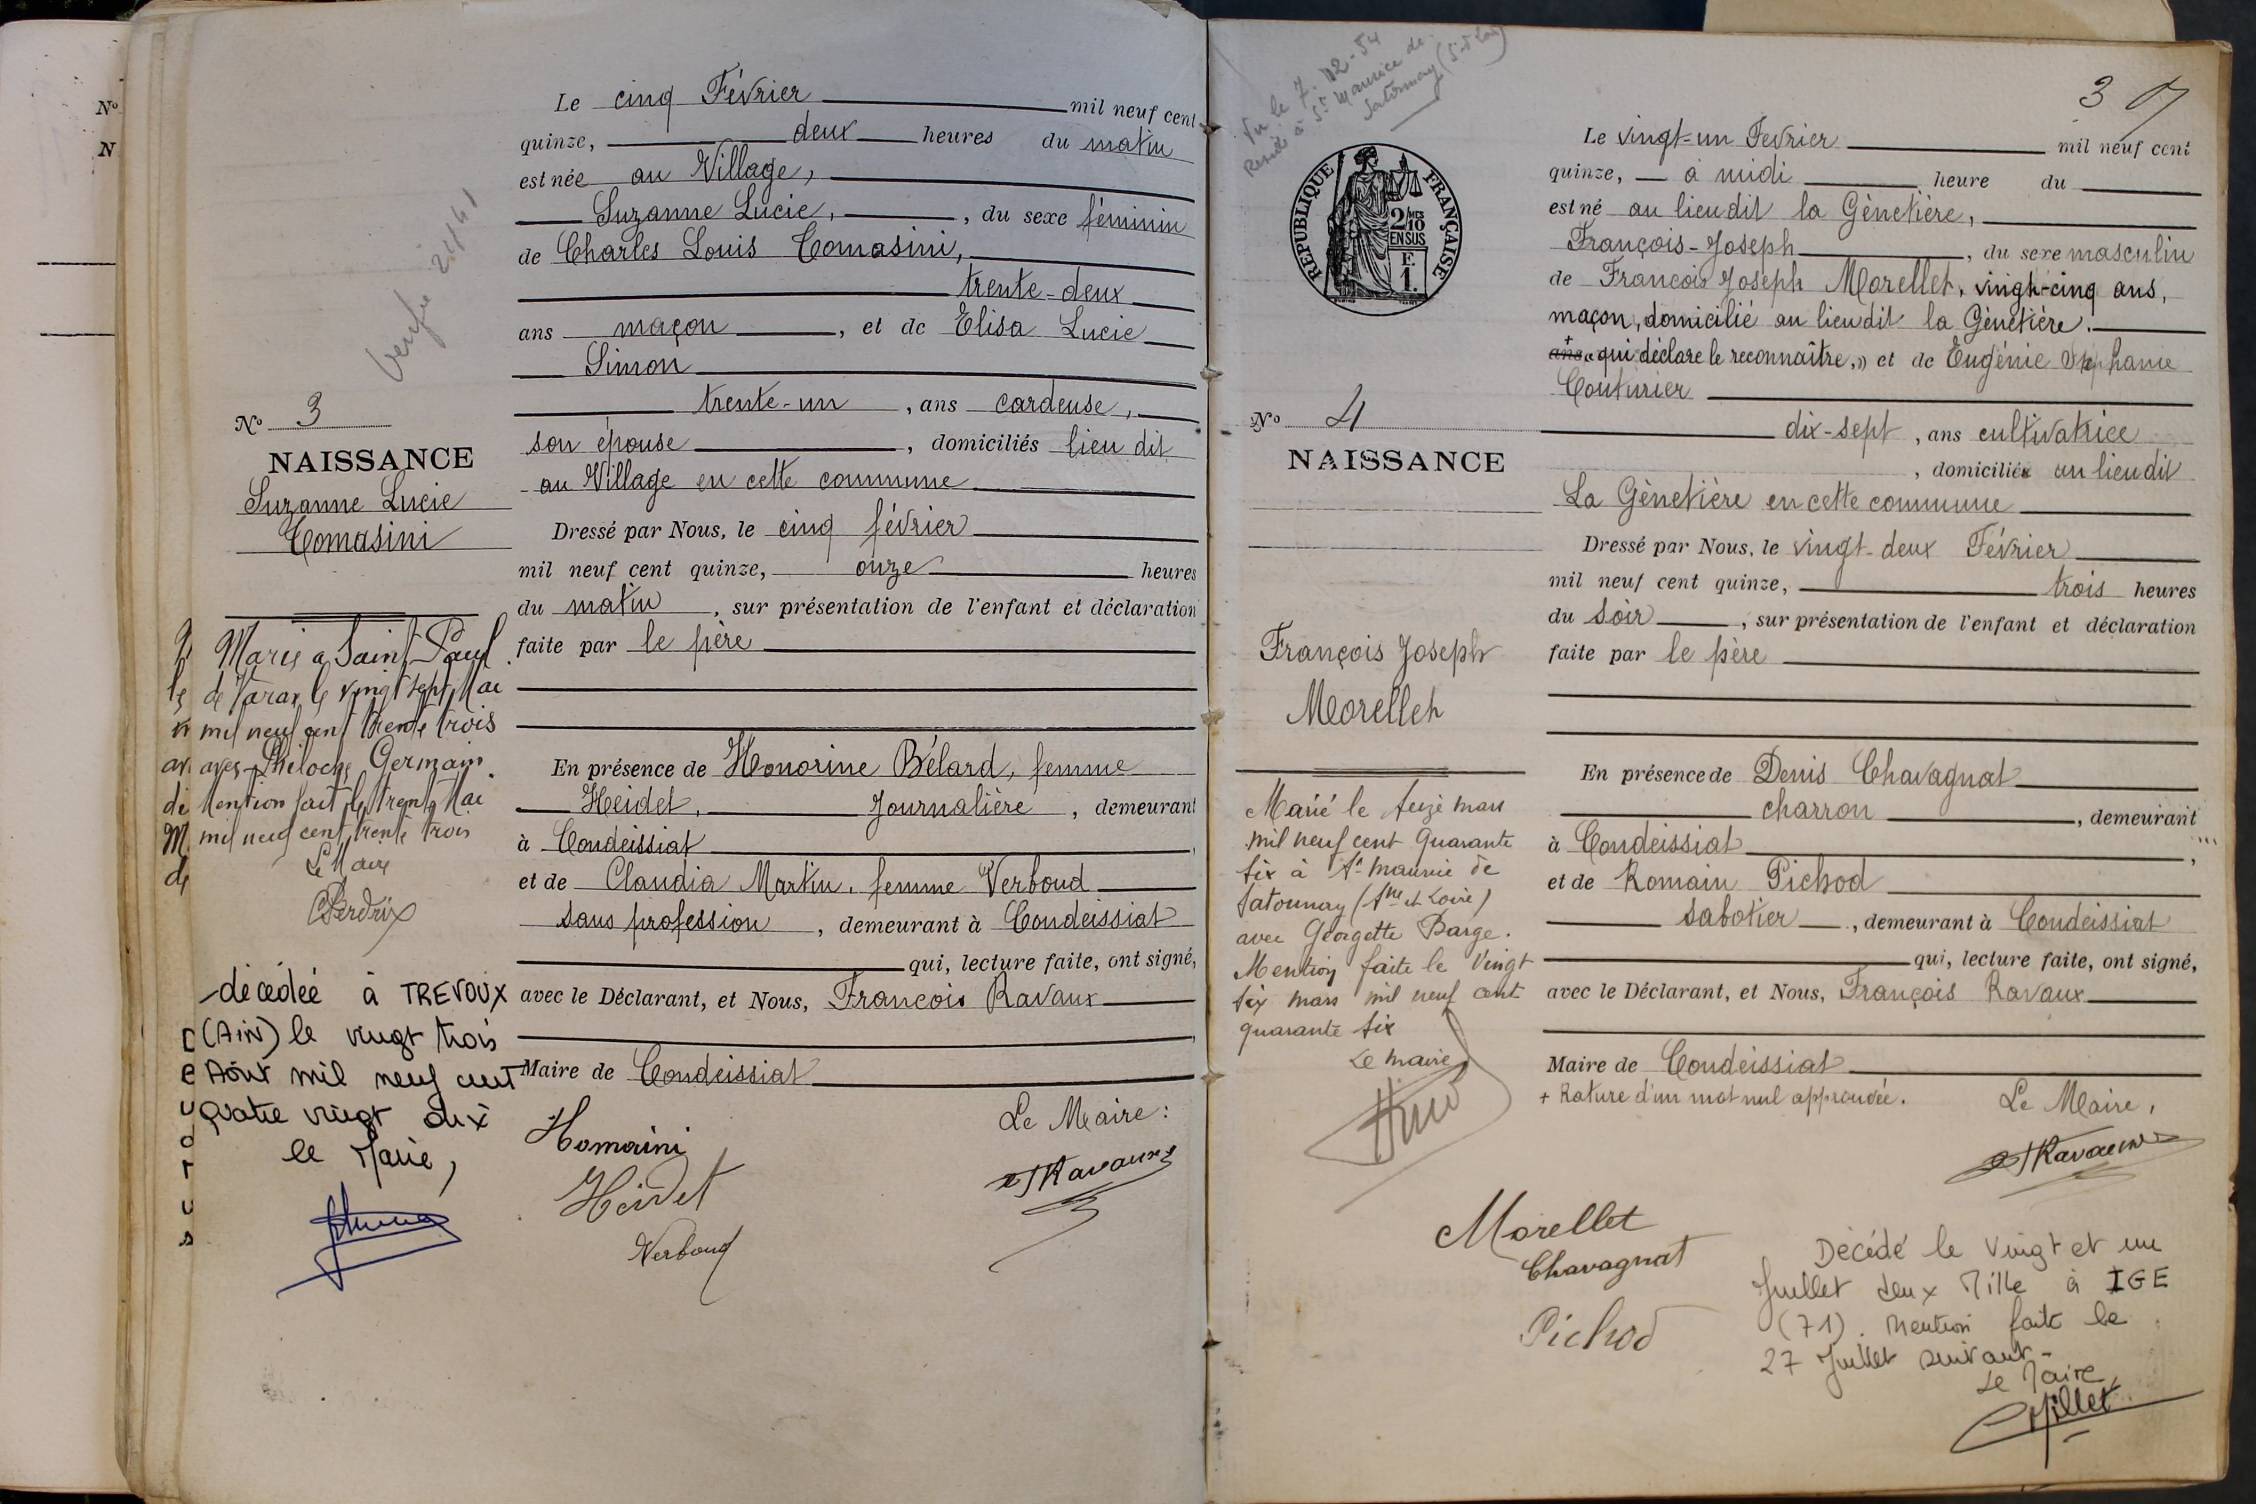 N°
N
Le cinq Février mil neuf cent
quinze, deux heures du matin
est née au Village,
Suzanne Lucie, , du sexe féminin
de Charles Louis Comasini,
trente-deux
ans maçon , et de Elisa Lucie
Simon
trente-un , ans cardeuse,
son épouse , domiciliés lieu dit
au Village en cette commune
Dressé par Nous, le cinq février
mil neuf cent quinze, onze heures
du matin , sur présentation de l'enfant et déclaration
faite par le père
En présence de Honorine Bélard, femme
Heidet, Journalière , demeurant
à Condeissiat ,
et de Claudia Martin, femme Verboud
sans profession , demeurant à Condeissiat
qui, lecture faite, ont signé,
avec le Déclarant, et Nous, François Ravaux
Maire de Condeissiat
Le Maire :
Heidet
Verboud
Ravaux
N° 3
NAISSANCE
Suzanne Lucie
Comasini
Mariée à Saint Paul
de Varax le vingt sept Mai
mil neuf cent trente trois
avec Germain.
Mention fait le trente Mai
mil neuf cent trente trois
Le Maire
Perdrix
décédée à TREVOUX
(AIN) le vingt trois
Août mil neuf cent
quatre vingt dix
le Maire,
Vu le 7.12.54
St Maurice de
Satonnay (S-et-Loire)
3
RÉPUBLIQUE FRANÇAISE
2 MES 10
EN SUS
F.
1.
Le vingt-un Fevrier mil neuf cent
quinze, à midi heure du
est né au lieu dit la Gènetière,
François-Joseph , du sexe masculin
de François Joseph Morellet, vingt-cinq ans,
maçon, domicilié au lieu dit la Gènetière.
+ ans « qui déclare le reconnaître, » et de Eugénie Stéphanie
Couturier
dix-sept , ans cultivatrice
, domiciliée au lieu dit
La Gènetière en cette commune
Dressé par Nous, le vingt-deux Février
mil neuf cent quinze, trois heures
du soir , sur présentation de l'enfant et déclaration
faite par le père
En présence de Denis Chavagnat
charron , demeurant
à Condeissiat ,
et de Romain Pichod
sabotier , demeurant à Condeissiat
qui, lecture faite, ont signé,
avec le Déclarant, et Nous, François Ravaux
Maire de Condeissiat
+ Rature d'un mot nul approuvée.
Le Maire,
Ravaux
Morellet
Chavagnat
Pichod
N° 4
NAISSANCE
François Joseph
Morellet
Marié le seize mars
mil neuf cent quarante
six à St Maurice de
Satonnay (Sne et Loire)
avec Georgette Barge.
Mention faite le vingt
six mars mil neuf cent
quarante six
Le maire
Décédé le vingt et un
Juillet deux Mille à IGE
(71). Mention faite le
27 Juillet suivant-
Le Maire,
Millet